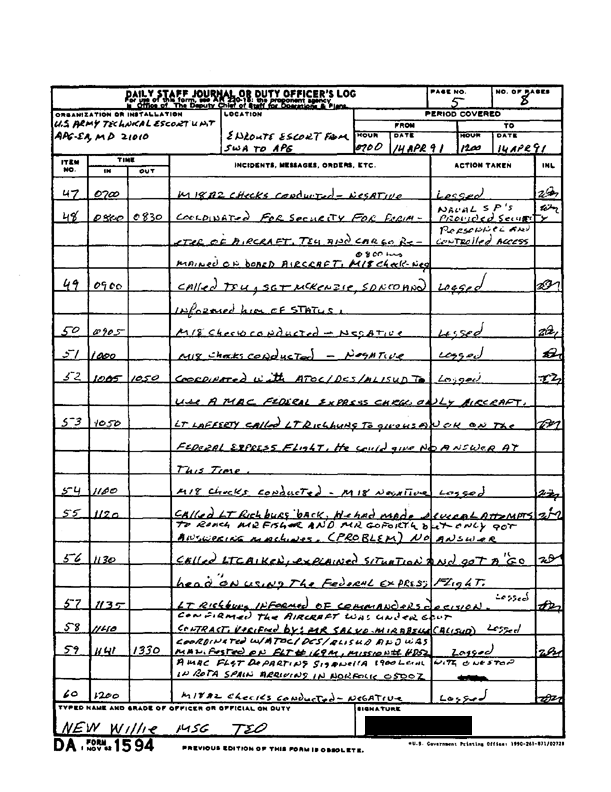 DAILY STAFF JOURNAL OR DUTY OFFICER'S LOG
For use of this form, see AR 220-15; the proponent agency
is Office of The Deputy Chief of Staff for Operations & Plans.
PAGE NO. 5
NO. OF PAGES 8
ORGANIZATION OR INSTALLATION
U.S ARMY TECHNICAL ESCORT UNIT
APG-EA, MD 21010
LOCATION
ENROUTE ESCORT FROM
SWA TO APG
PERIOD COVERED
FROM TO
HOUR DATE HOUR DATE
0700 14 APR 91 1200 14 APR 91
ITEM NO. TIME IN OUT INCIDENTS, MESSAGES, ORDERS, ETC. ACTION TAKEN INL
47 0700 M18A2 CHECKS CONDUCTED - NEGATIVE Logged
48 0800 0830 COORDINATED FOR SECURITY FOR PERIM- NAVAL SP'S PROVIDED SECURITY
ETER OF AIRCRAFT. TEU AND CARGO RE- PERSONNEL AND CONTROLLED ACCESS
0800 hrs
MAINED ON BOARD AIRCRAFT. M18 Check-Neg
49 0900 CALLED TEU, SGT MCKENZIE, SDNCO AND Logged
INFORMED him OF STATUS.
50 0905 M18 Checks CONDUCTED - NEGATIVE Logged
51 1000 M18 Checks CONDUCTED - NEGATIVE Logged
52 1005 1050 COORDINATED with ATOC/DCS/ALISUD TO Logged
USE A MAC FEDERAL EXPRESS CARGO ONLY AIRCRAFT.
53 1050 LT LAFFERTY CALLED LT Richburg TO give us AN OK ON The
FEDERAL EXPRESS Flight. He could give NO ANSWER AT
This Time.
54 1100 M18 Checks CONDUCTED - M18 Negative Logged
55 1120 CALLED LT Richburg back. He had made several ATTEMPTS
TO REACH MR FISHER AND MR GOFORTH but only got
ANSWERING MACHINES. (PROBLEM) NO ANSWER
56 1130 CALLED LTC AIKEN, EXPLAINED SITUATION AND got A "GO
head" ON USING The Federal EXPRESS Flight.
57 1135 LT Richburg INFORMED OF COMMANDERS DECISION. Logged
CONFIRMED THE AIRCRAFT WAS UNDER GOVT
58 1140 CONTRACT. VERIFIED by: MR SALVO-MIRABELLA (ALISUD) Logged
59 1141 1330 COORDINATED W/ATOC/DCS/ALISUD AND WAS
MANIFESTED ON FLT # 169M, MISSION# Logged
A MAC FLGT DEPARTING SIGANELLA 1900 Local WITH ONE STOP
IN ROTA SPAIN ARRIVING IN NORFOLK 0500Z
60 1200 M18A2 Checks CONDUCTED - NEGATIVE Logged
TYPED NAME AND GRADE OF OFFICER OR OFFICIAL ON DUTY
NEW Willie MSG TEO
SIGNATURE
DA FORM 1 NOV 62 1594
PREVIOUS EDITION OF THIS FORM IS OBSOLETE.
*U.S. Government Printing Office: 1990-261-871/02728